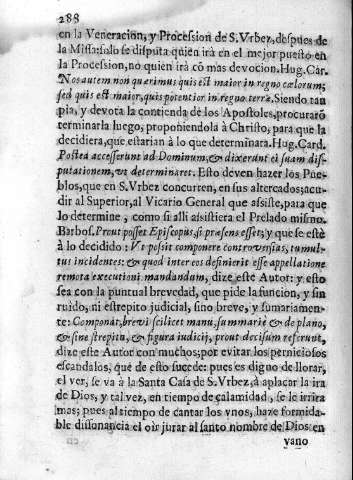 288
en la Veneracion, y Procession de S. Vrbez, despues de
la Missa: solo se disputa quien irà en el mejor puesto en
la Procession, no quien irà cõ mas devocion. Hug. Car.
Nos autem non quærimus quis est maior in regno cœlorum;
sed quis est maior, quis potentior in regno terræ. Siendo tan
pia, y devota la contienda de los Apostoles, procurarõ
terminarla luego, proponiendola à Christo, para que la
decidiera, que estarian à lo que determinara. Hug. Card.
Postea accesserunt ad Dominum, & dixerunt ei suam dis-
putationem, vt determinaret. Esto deven hazer los Pue-
blos, que en S. Vrbez concurren, en sus altercados; acu-
dir al Superior, al Vicario General que assiste, para que
lo determine, como si alli assistiera el Prelado mismo.
Barbos. Prout posset Episcopus, si præsens esset; y que se estè
à lo decidido: Vt possit componere controversias, tumul-
tus incidentes: & quod inter eos definierit esse appellatione
remota executioni mandandum, dize este Autor: y esto
sea con la puntual brevedad, que pide la funcion, y sin
ruido, ni estrepito judicial, sino breve, y sumariamen-
te: Componãt, brevi scilicet manu, summariè & de plano,
& sine strepitu, & figura iudicij, prout decisum referunt,
dize este Autor con muchos; por evitar los perniciosos
escandalos, què de esto sucede: pues es digno de llorar,
el ver, se va à la Santa Casa de S. Vrbez, à aplacar la ira
de Dios, y tal vez, en tiempo de calamidad, se le irrita
mas; pues al tiempo de cantar los vnos, haze formida-
ble dissonancia el oir jurar al santo nombre de Dios en
vano